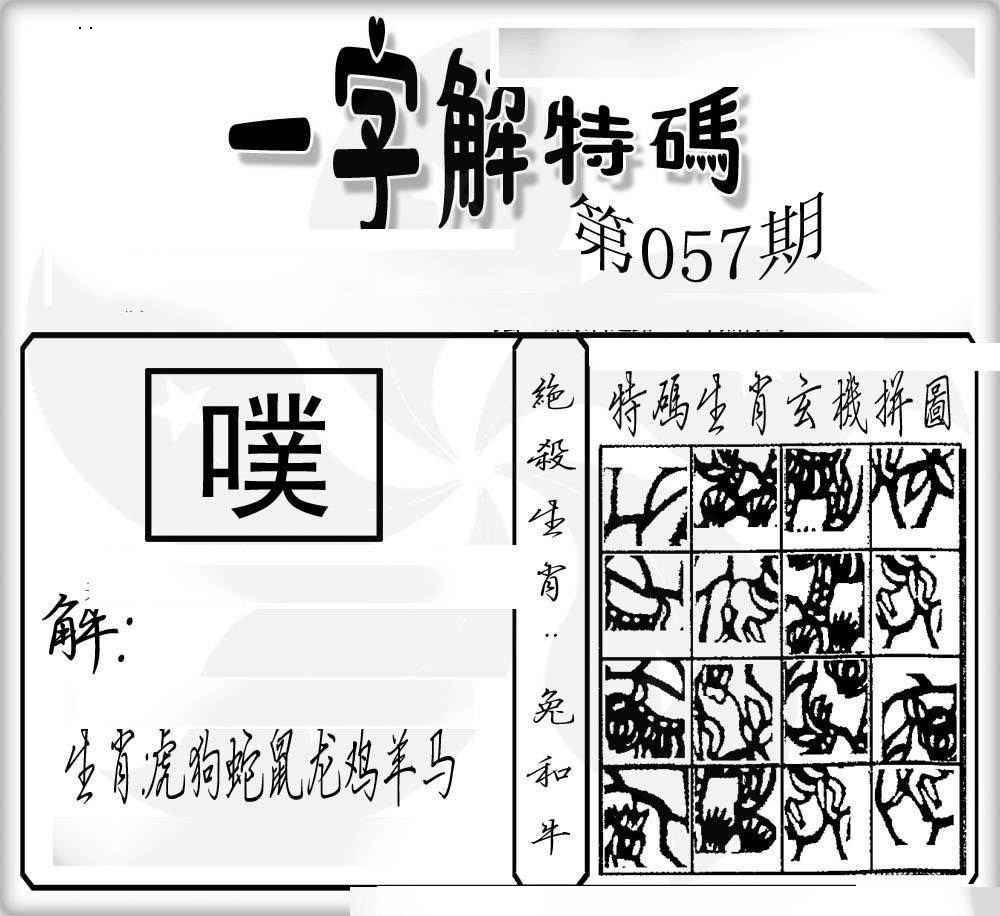 一字解特碼
第057期
噗
解:
生肖:虎狗蛇鼠龙鸡羊马
絕殺生肖:兔和牛
特碼生肖玄機拼圖